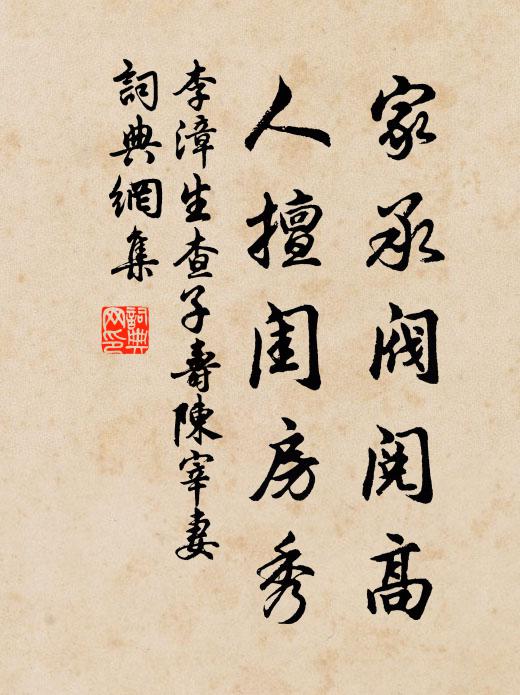 家承阀阅高
人擅闺房秀
李漳生查子壽陳宰妻
詞典網集
詞典网印